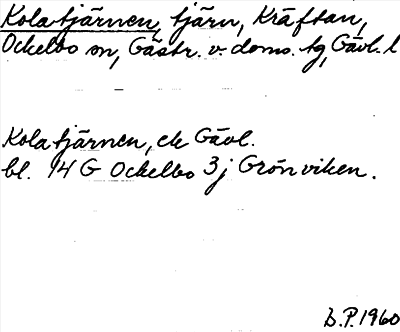 Kolatjärnen, tjärn, Kräftan,
Ockelbo sn, Gästr. v. doms. tg, Gävl. l
Kolatjärnen, ek Gävl.
bl. 14 G Ockelbo 3j Grönviken.
D.P. 1960